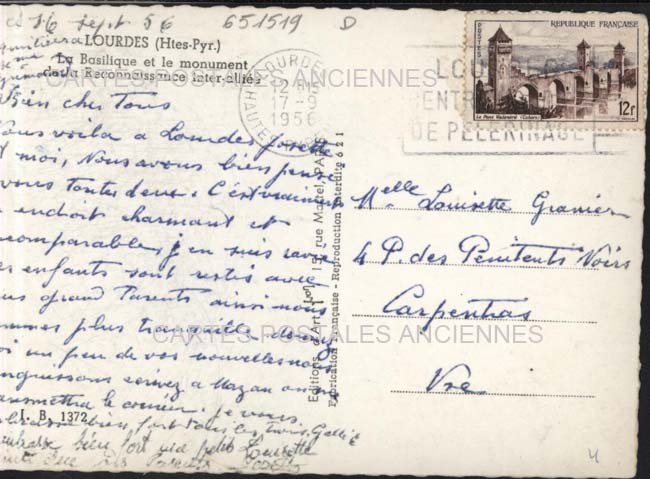 16 Sept 56 651519 D
LOURDES (Htes-Pyr.)
La Basilique et le monument
de la Reconnaissance inter-alliée
REPUBLIQUE FRANÇAISE
POSTES
12F
Le Pont Valentré (Cahors)
LOURDES
12 H 15
17-9
1956
HAUTES
LOURDES
CENTRE
DE PÈLERINAGE
CARTES POSTALES ANCIENNES
Bien chers tous
Vous voila a Lourdes Josette
et moi, Nous avons bien pensé
a vous toutes deux. C'est vraiment
un endroit charmant et
incomparable, j'en suis ravie
les enfants sont restés avec
grand Parents ainsi nous
sommes plus tranquille
un peu de vos nouvelles nous
languissons écrivez a Mazan on
transmettra le courrier. Je vous
embrasse bien fort tous les trois.
bien fort ma petite Louisette
Editions d'Art 15, rue Martel, PARIS
Fabrication Française - Reproduction Interdite 621
Melle Louisette Granier
4 P. des Pénitents Noirs
Carpentras
Vse
CARTES POSTALES ANCIENNES
I. B. 1372
4